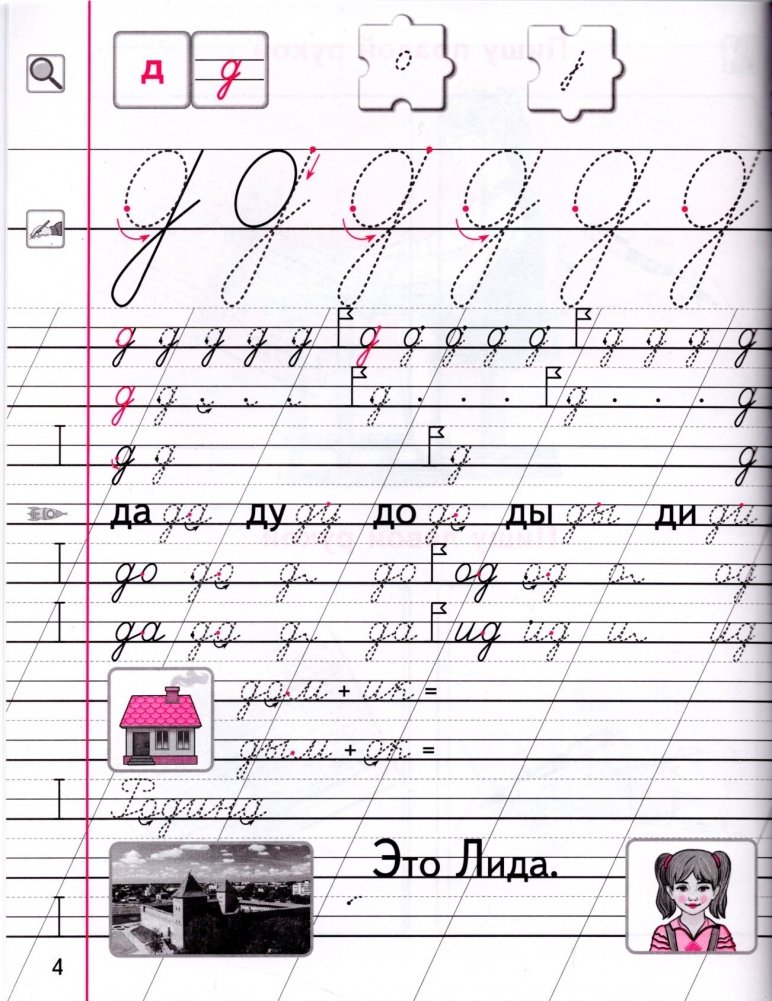 д д
д д д д д д
д д д д д д д д д д д д д д
д д д д д
д д д д
да да ду ду до до ды ды ди ди
до до д до од од о од
да да д да ид ид и ид
дом + ик =
дым + ок =
Родина
Это Лида.
4